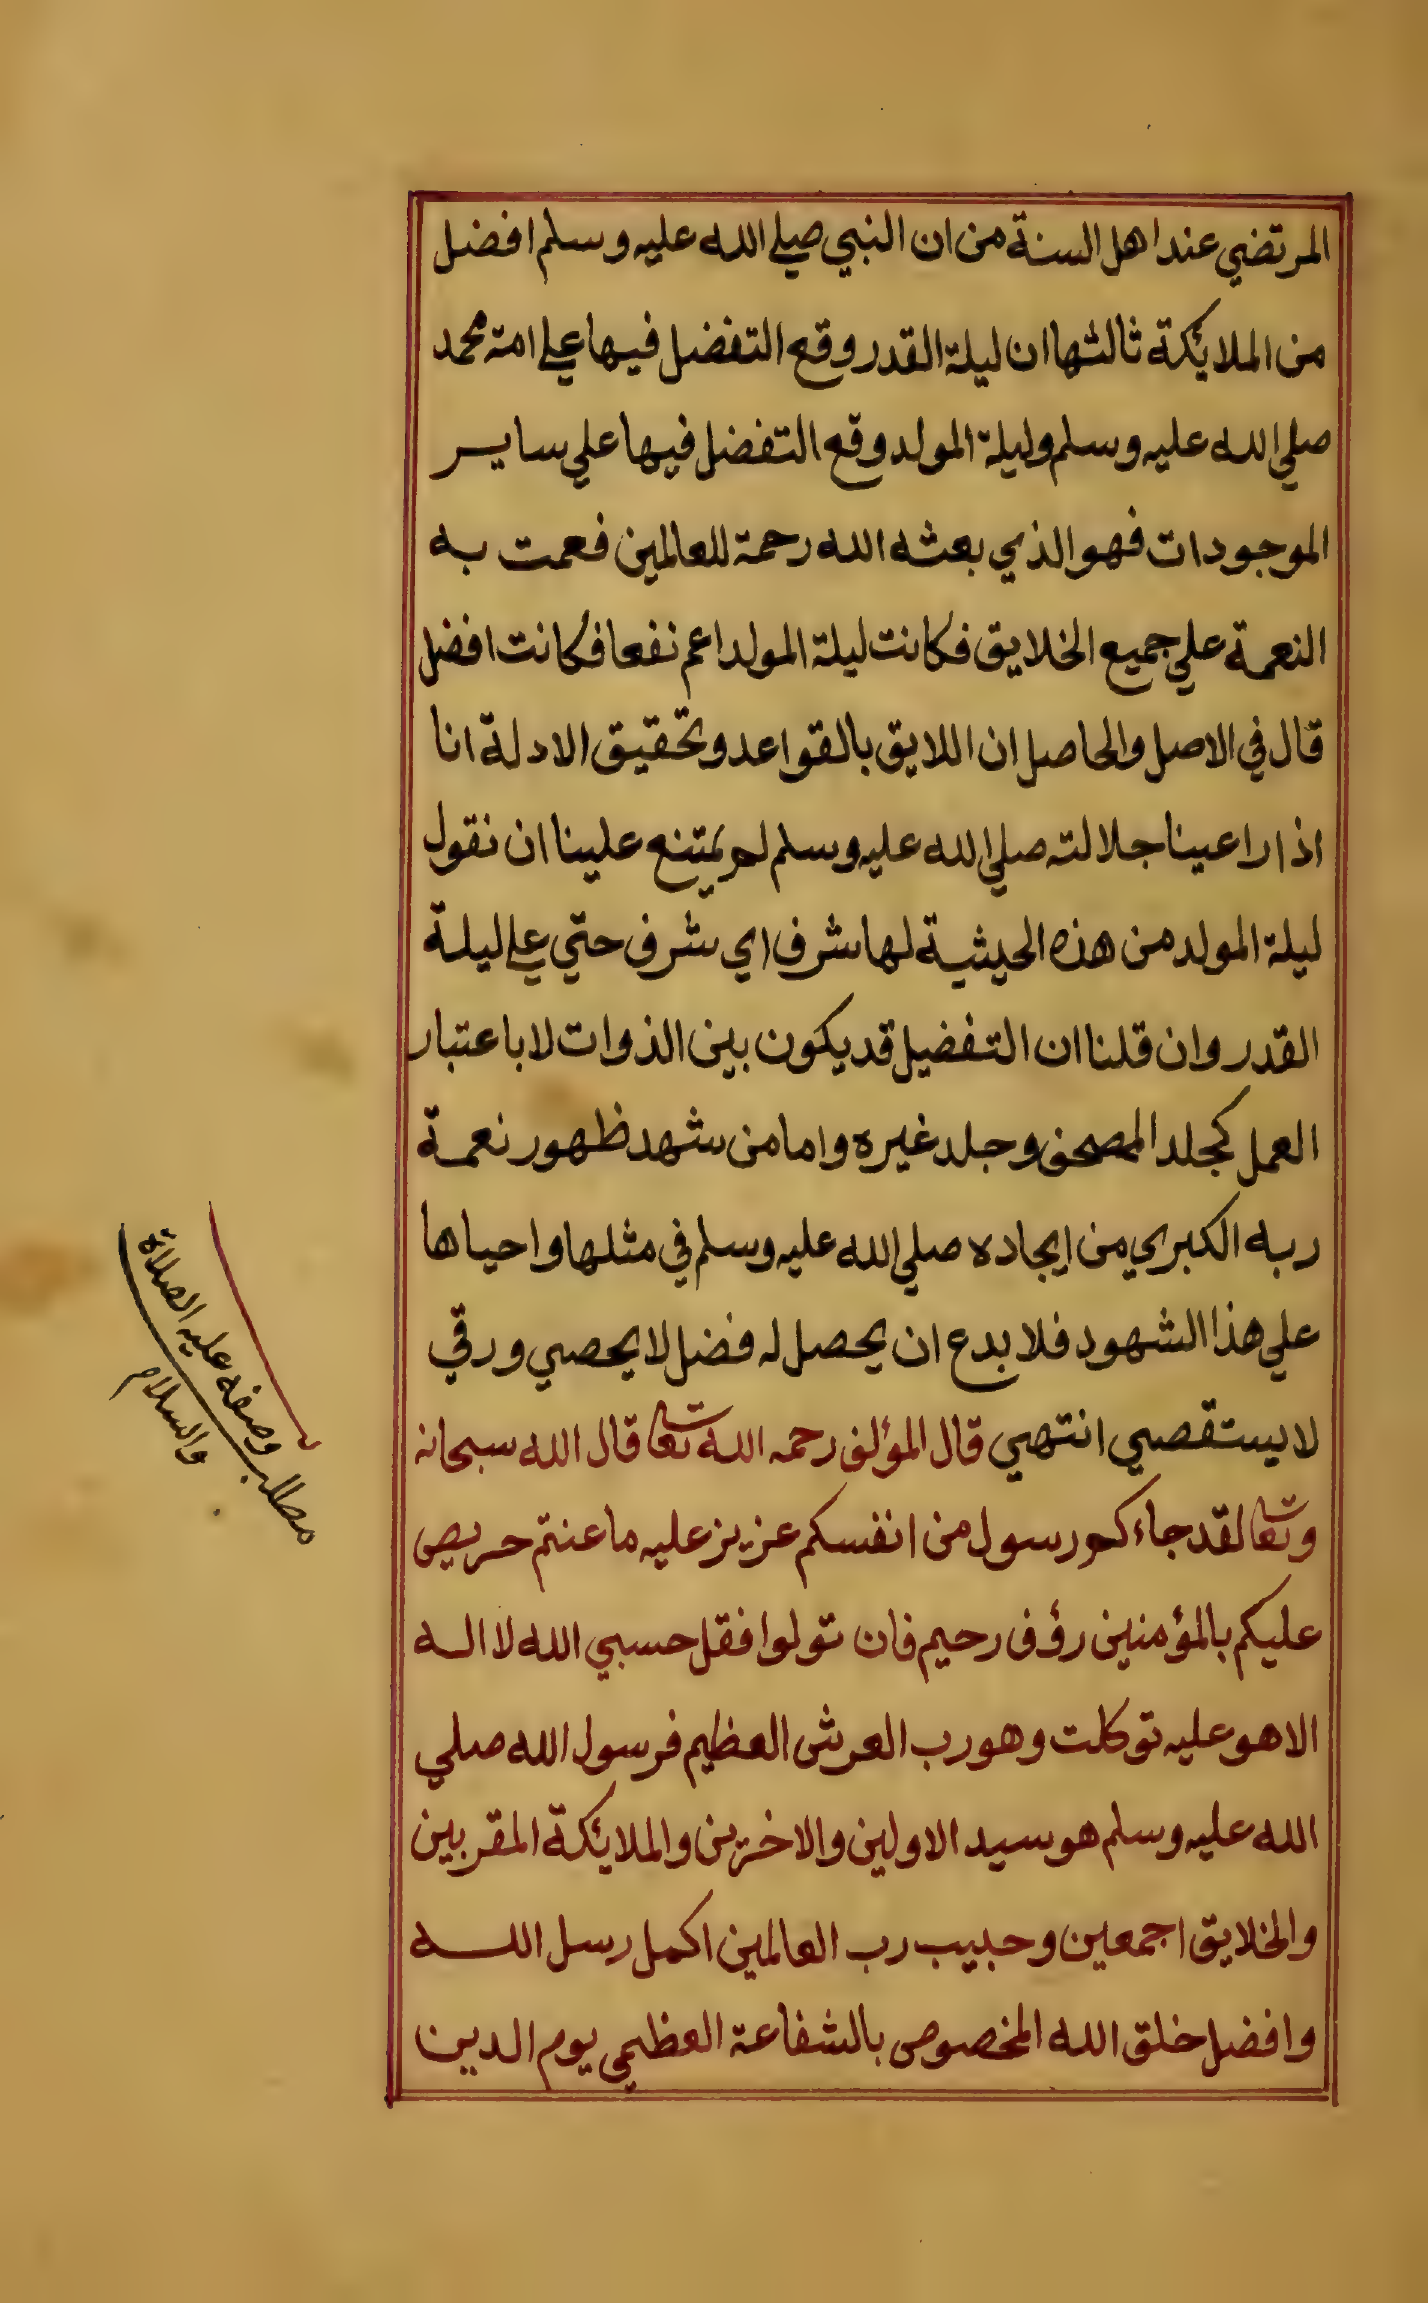 المرتضي عند اهل السنة من ان النبي صلي الله عليه وسلم افضل
من الملايكة ثالثها ان ليلة القدر وقع التفضل فيها علي امة محمد
صلي الله عليه وسلم وليلة المولد وقع التفضل فيها علي ساير
الموجودات فهو الذي بعثه الله رحمة للعالمين فعمت به
النعمة علي جميع الخلايق فكانت ليلة المولد اعم نفعا فكانت افضل
قال في الاصل والحاصل ان اللايق بالقواعد وتحقيق الادلة انا
اذا راعينا جلالته صلي الله عليه وسلم لم يمتنع علينا ان نقول
ليلة المولد من هذه الحيثية لها شرف اي شرف حتي علي ليلة
القدر وان قلنا ان التفضيل قد يكون بين الذوات لا باعتبار
العمل كجلد المصحف وجلد غيره واما من شهد ظهور نعمة
ربه الكبري من ايجاده صلي الله عليه وسلم في مثلها واحياها
علي هذا الشهود فلا بدع ان يحصل له فضل لا يحصي ورقي
لا يستقصي انتهي قال المؤلف رحمه الله تعا قال الله سبحانه
وتعا لقد جاءكم رسول من انفسكم عزيز عليه ما عنتم حريص
عليكم بالمؤمنين رؤف رحيم فان تولوا فقل حسبي الله لا اله
الا هو عليه توكلت وهو رب العرش العظيم فرسول الله صلي
الله عليه وسلم هو سيد الاولين والاخرين والملايكة المقربين
والخلايق اجمعين وحبيب رب العالمين اكمل رسل الله
وافضل خلق الله المخصوص بالشفاعة العظمي يوم الدين
مطلب وصفه عليه الصلاة
والسلام